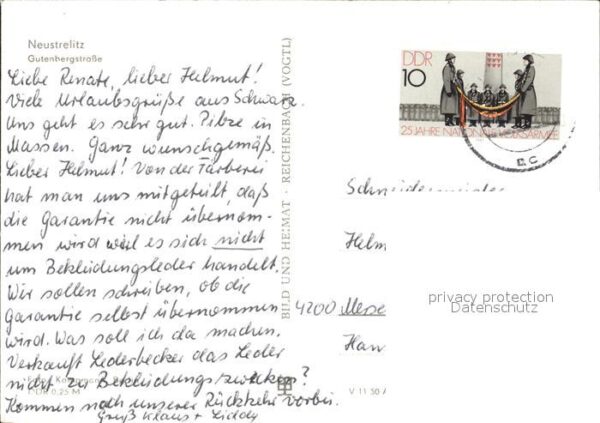 Neustrelitz
Gutenbergstraße
Liebe Renate, lieber Helmut!
Viele Urlaubsgrüße aus Schwarz.
Uns geht es sehr gut. Pilze in
Massen. Ganz wunschgemäß.
Lieber Helmut! Von der Färberei
hat man uns mitgeteilt, daß
die Garantie nicht übernom-
men wird weil es sich nicht
um Bekleidungsleder handelt.
Wir sollen schreiben, ob die
Garantie selbst übernommen
wird. Was soll ich da machen.
Verkauft Lederbecker das Leder
nicht zu Bekleidungszwecken?
Kommen nach unserer Rückkehr vorbei.
Gruß Klaus + Liddy
DDR 0,25 M
BILD UND HEIMAT · REICHENBACH (VOGTL)
V 11 50
DDR
10
25 JAHRE NATIONALE VOLKSARMEE
Schneidermeister
Helm
4200 Merse
Han
privacy protection
Datenschutz